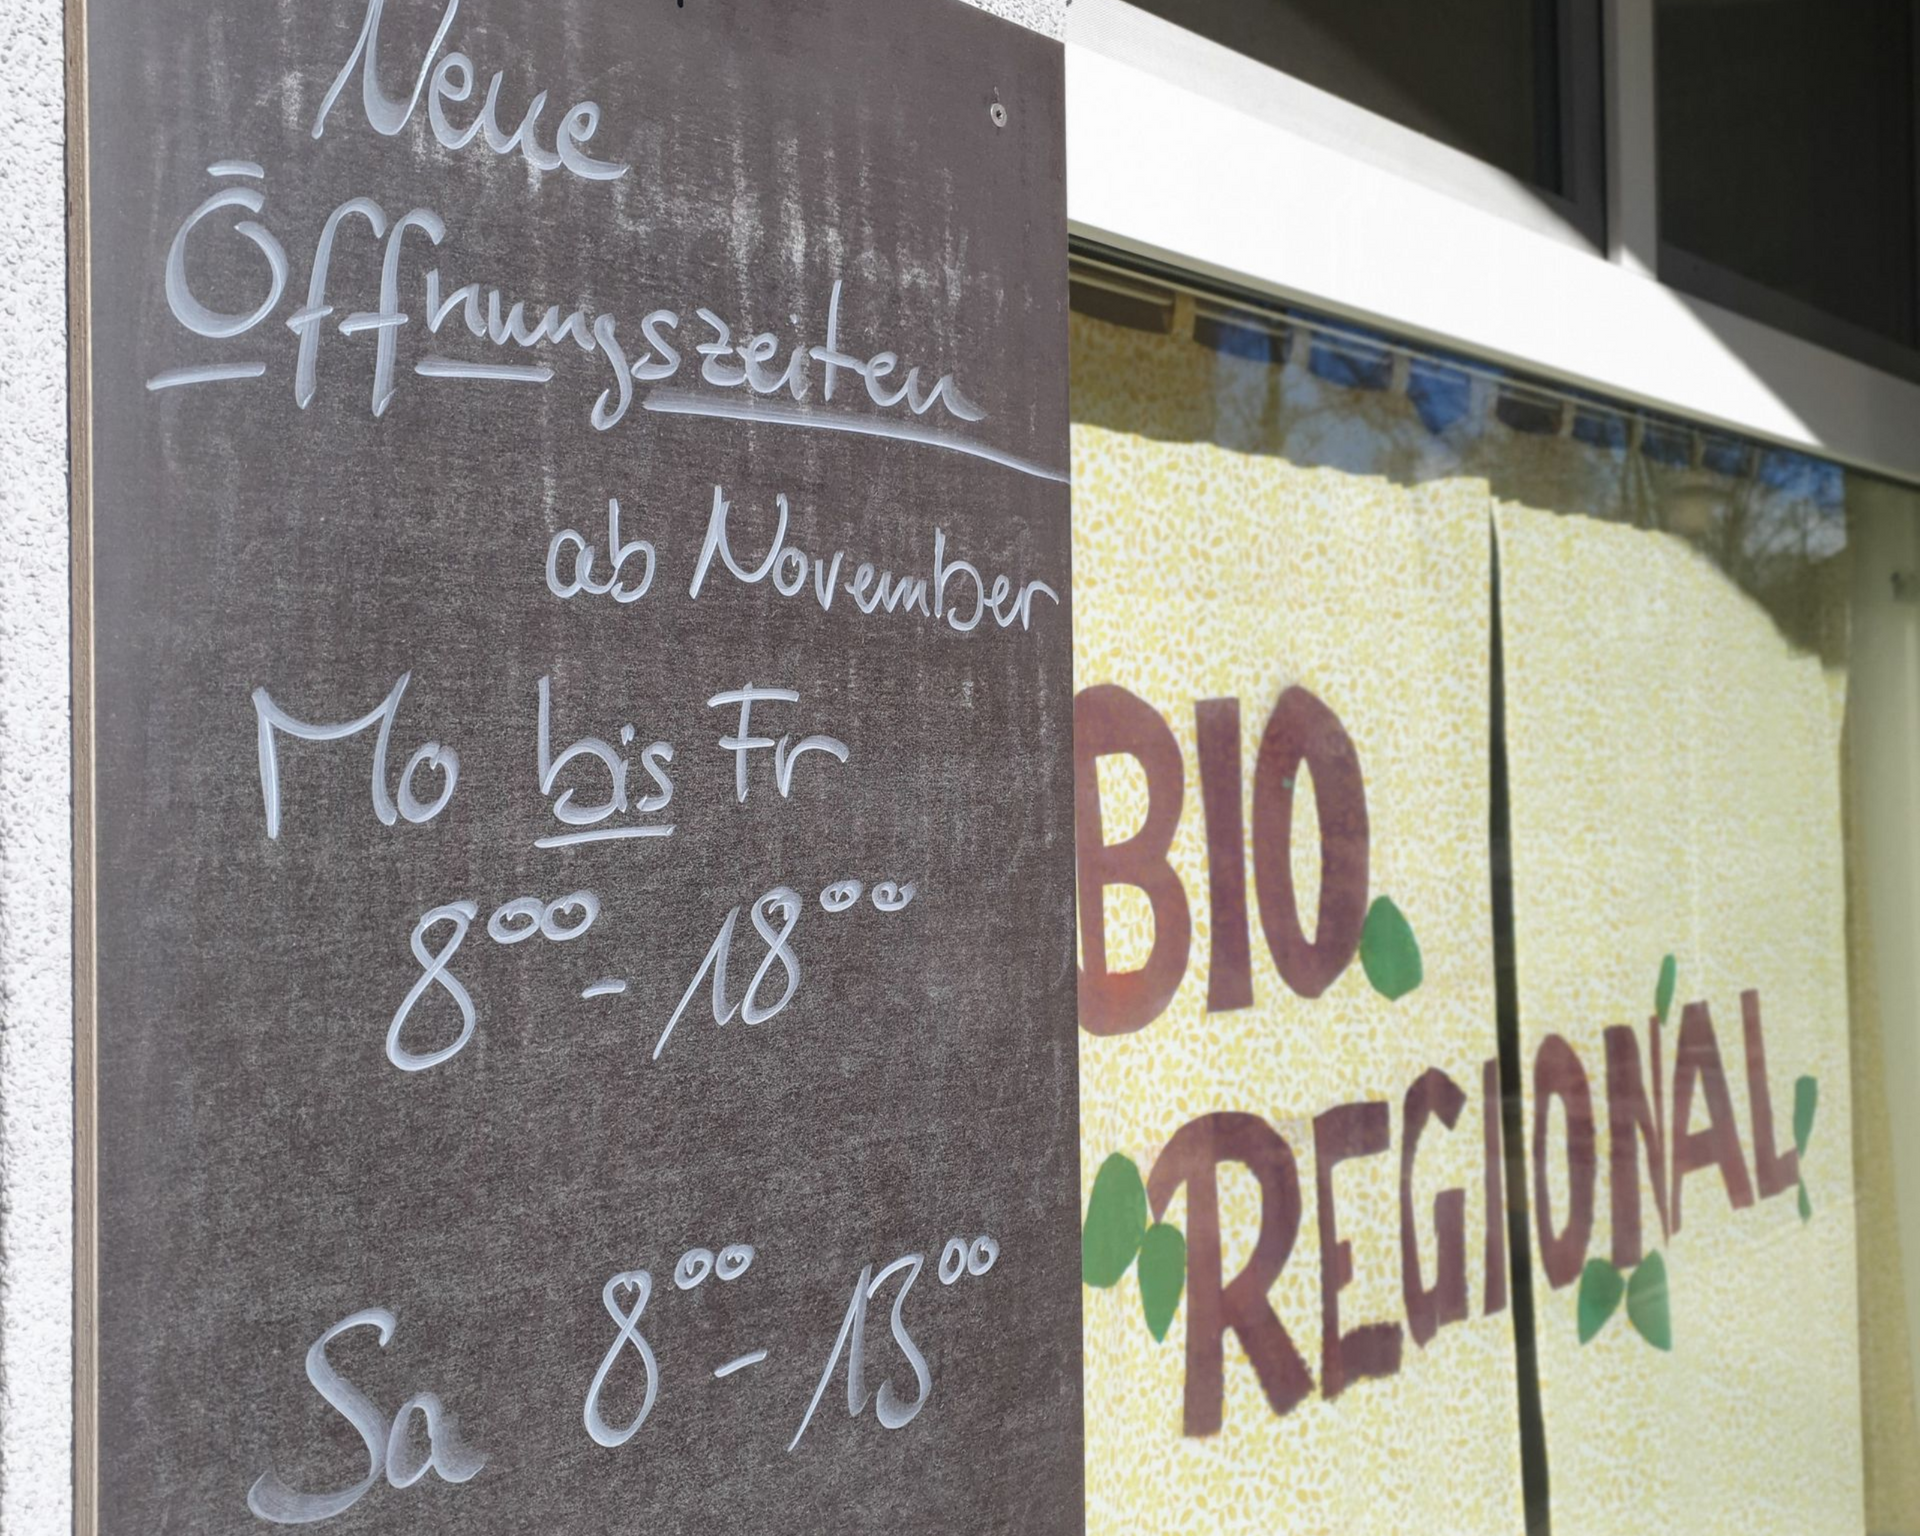 Neue
Öffnungszeiten
ab November
Mo bis Fr
8⁰⁰ - 18⁰⁰
Sa 8⁰⁰ - 13⁰⁰
BIO
REGIONAL